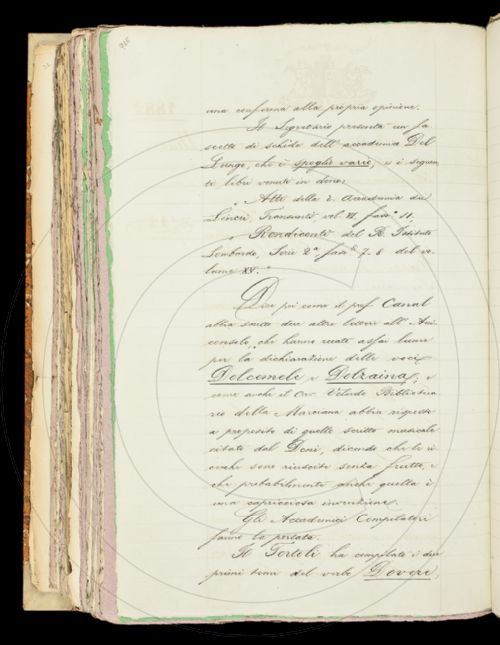 una conferma alla propria opinione.
Il Segretario presenta un fa
scetto di schede dell'accademico Del
Lungo, che è spoglio vario, e i seguen
ti libri venuti in dono:
Atti della R. Accademia dei
Lincei, Transunti, vol. VI, fasc.º 11,
Rendiconti del R. Istituto
Lombardo, Serie 2ª fasc. 7-8 del vo
lume XV.
Dice poi come il prof. Canal
abbia scritto due altre lettere all'Arci
consolo, che hanno recato assai lume
per la dichiarazione delle voci
Dolcemele e Dolzaina; e
come anche il cav. Veludo Biblioteca
rio della Marciana abbia risposto
a proposito di quello scritto musicale
citato dal Doni, dicendo che le ri
cerche sono riuscite senza frutto, e
che probabilmente anche quella è
una capricciosa invenzione.
Gli Accademici Compilatori
fanno la portata.
Il Tortoli ha compilato i due
primi temi del verbo Dovere,